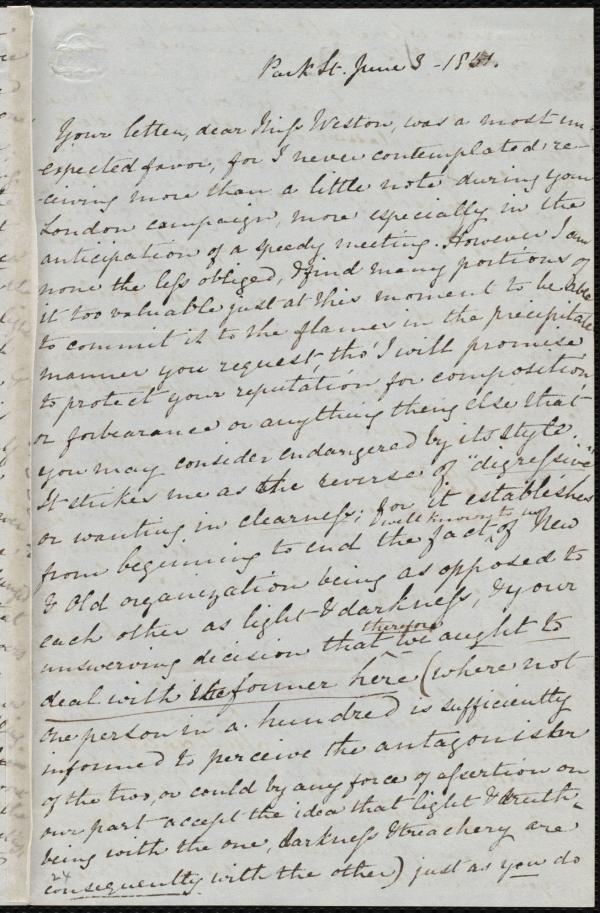 Park St. June 3 - 1851.
Your letter, dear Miss Weston, was a most un-
expected favor, for I never contemplated re-
ceiving more than a little note during your
London campaign, more especially in the
anticipation of a speedy meeting. However I am
none the less obliged, & find many portions of
it too valuable just at this moment to be able
to commit it to the flames in the precipitate
manner you request, tho' I will promise
to protect your reputation for composition
or forbearance or anything thing else that
you may consider endangered by its style.
It strikes me as the reverse of "digressive"
or wanting in clearness; for it establishes
from beginning to end the fact, well known to us, of New
& Old organization being as opposed to
each other as light & darkness, & your
unswerving decision that therefore we ought to
deal with the former here (where not
one person in a hundred is sufficiently
informed to perceive the antagonism
of the two, or could by any force of assertion on
our part accept the idea that light & truth
being with the one, darkness & treachery are
consequently with the other) just as you do
24